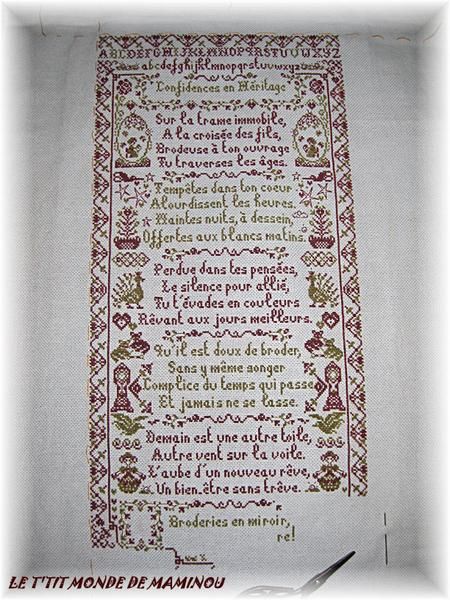 ABCDEFGHIJKLMNOPQRSTUVWXYZ
abcdefghijklmnopqrstuvwxyz
"Confidences en Héritage"
Sur la trame immobile,
A la croisée des fils,
Brodeuse à ton ouvrage
Tu traverses les âges.
Tempêtes dans ton coeur
Alourdissent les heures.
Maintes nuits, à dessein,
Offertes aux blancs matins.
Perdue dans tes pensées,
Le silence pour allié,
Tu t'évades en couleurs
Rêvant aux jours meilleurs.
Qu'il est doux de broder,
Sans y même songer
Complice du temps qui passe
Et jamais ne se lasse.
Demain est une autre toile,
Autre vent sur la voile.
L'aube d'un nouveau rêve,
Un bien.être sans trêve.
Broderies en miroir,
re!
LE T'TIT MONDE DE MAMINOU